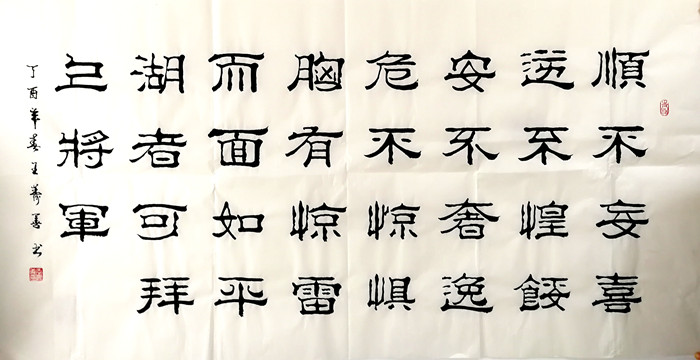 順不妄喜
逆不惶餒
安不奢逸
危不惊惧
胸有惊雷
而面如平
湖者可拜
上將軍
丁酉年春王善书